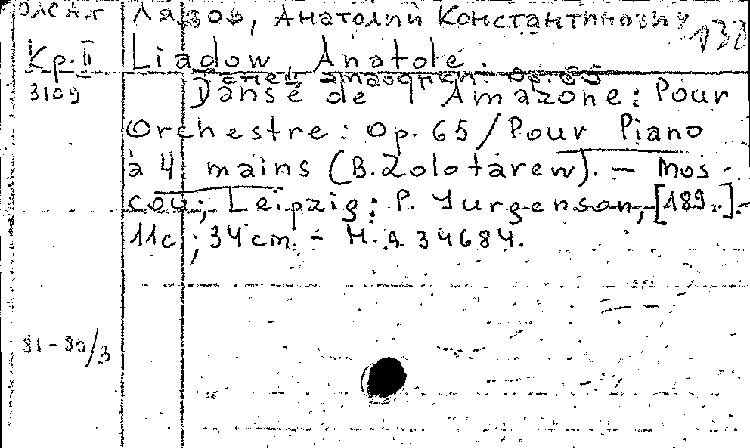 Лядов, Анатолий Константинович
132
Кр. II
Liadow, Anatole.
3109
Danse de l'Amazone: Pour
Orchestre: Op. 65 / Pour Piano
à 4 mains (B. Zolotarew). – Mos-
cou; Leipzig: P. Jurgenson, [189.].–
11с.; 34 cm. – Н.д. 34684.
91-90/3